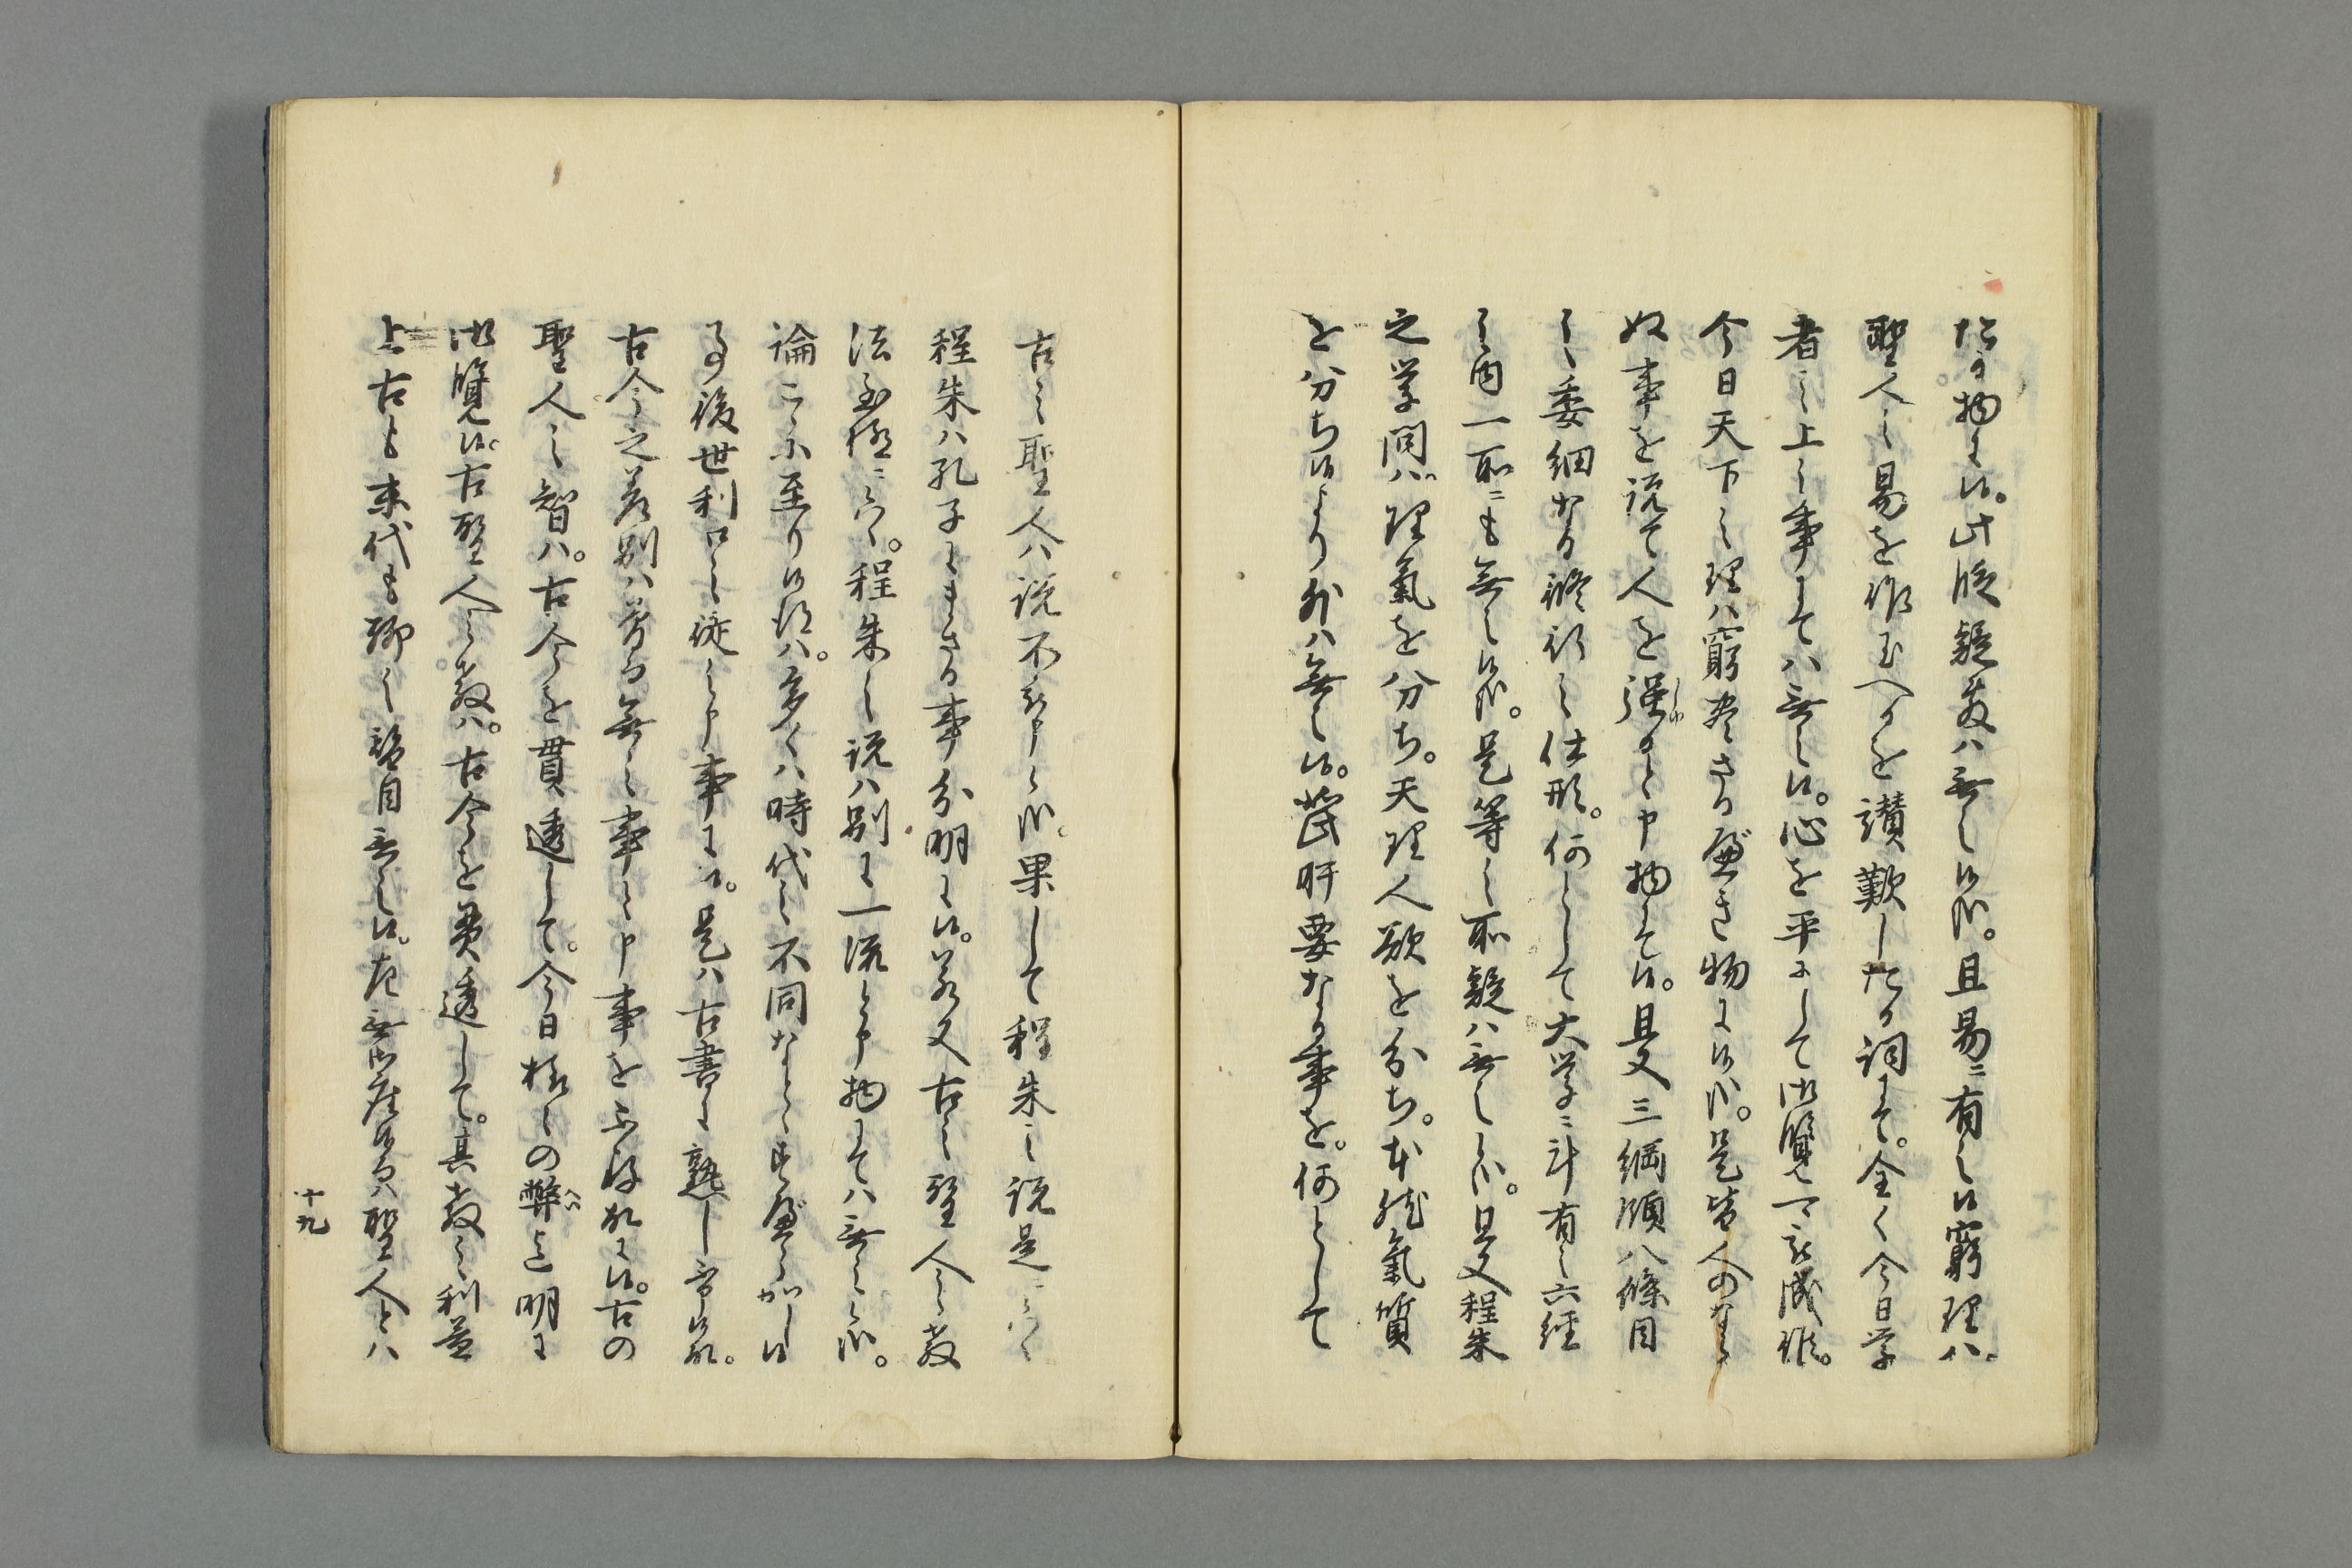 たる物に候。此段疑敷ハ無之候哉。且易ニ有之候窮理ハ。
聖人之易を作玉へるを讃歎したる詞にて。全く今日学
者之上之事にてハ無之候。心を平にして御覧可被成候。
今日天下之理ハ窮尽さる歴き物に候哉。是皆人のなら
ぬ事を説て人を強ると申物にて候。且又三綱領八條目
之委細なる修行之仕形。何として大学ニ計有之六経
之内一所ニも無之候哉。是等之所疑ハ無之候哉。且又程朱
之学問ハ理氣を分ち。天理人欲を分ち。本然氣質
を分ち候より外ハ無之候。此肝要なる事を。何として
古之聖人ハ説不被申候哉。果して程朱之説是ニ候ハヽ
程朱ハ孔子にまさる事分明に候。若又古之聖人之教
法至極ニ候ハヽ。程朱之説ハ別に一流と申物にてハ無之候哉。
論こゝに至り候得ハ。多くハ時代之不同なとゝ申
事。後世利口之徒之申事に候。是ハ古書に熟し不申候故。
古今之差別ハ曽而無之事と申事を不存故に候。古の
聖人之智ハ。古今を貫透して。今日様々の弊迄明に
御覧候。古聖人之教ハ。古今を貫透して。其教之利益
上古も末代も聊之替目無之候。左無御座候而ハ聖人とハ
十九